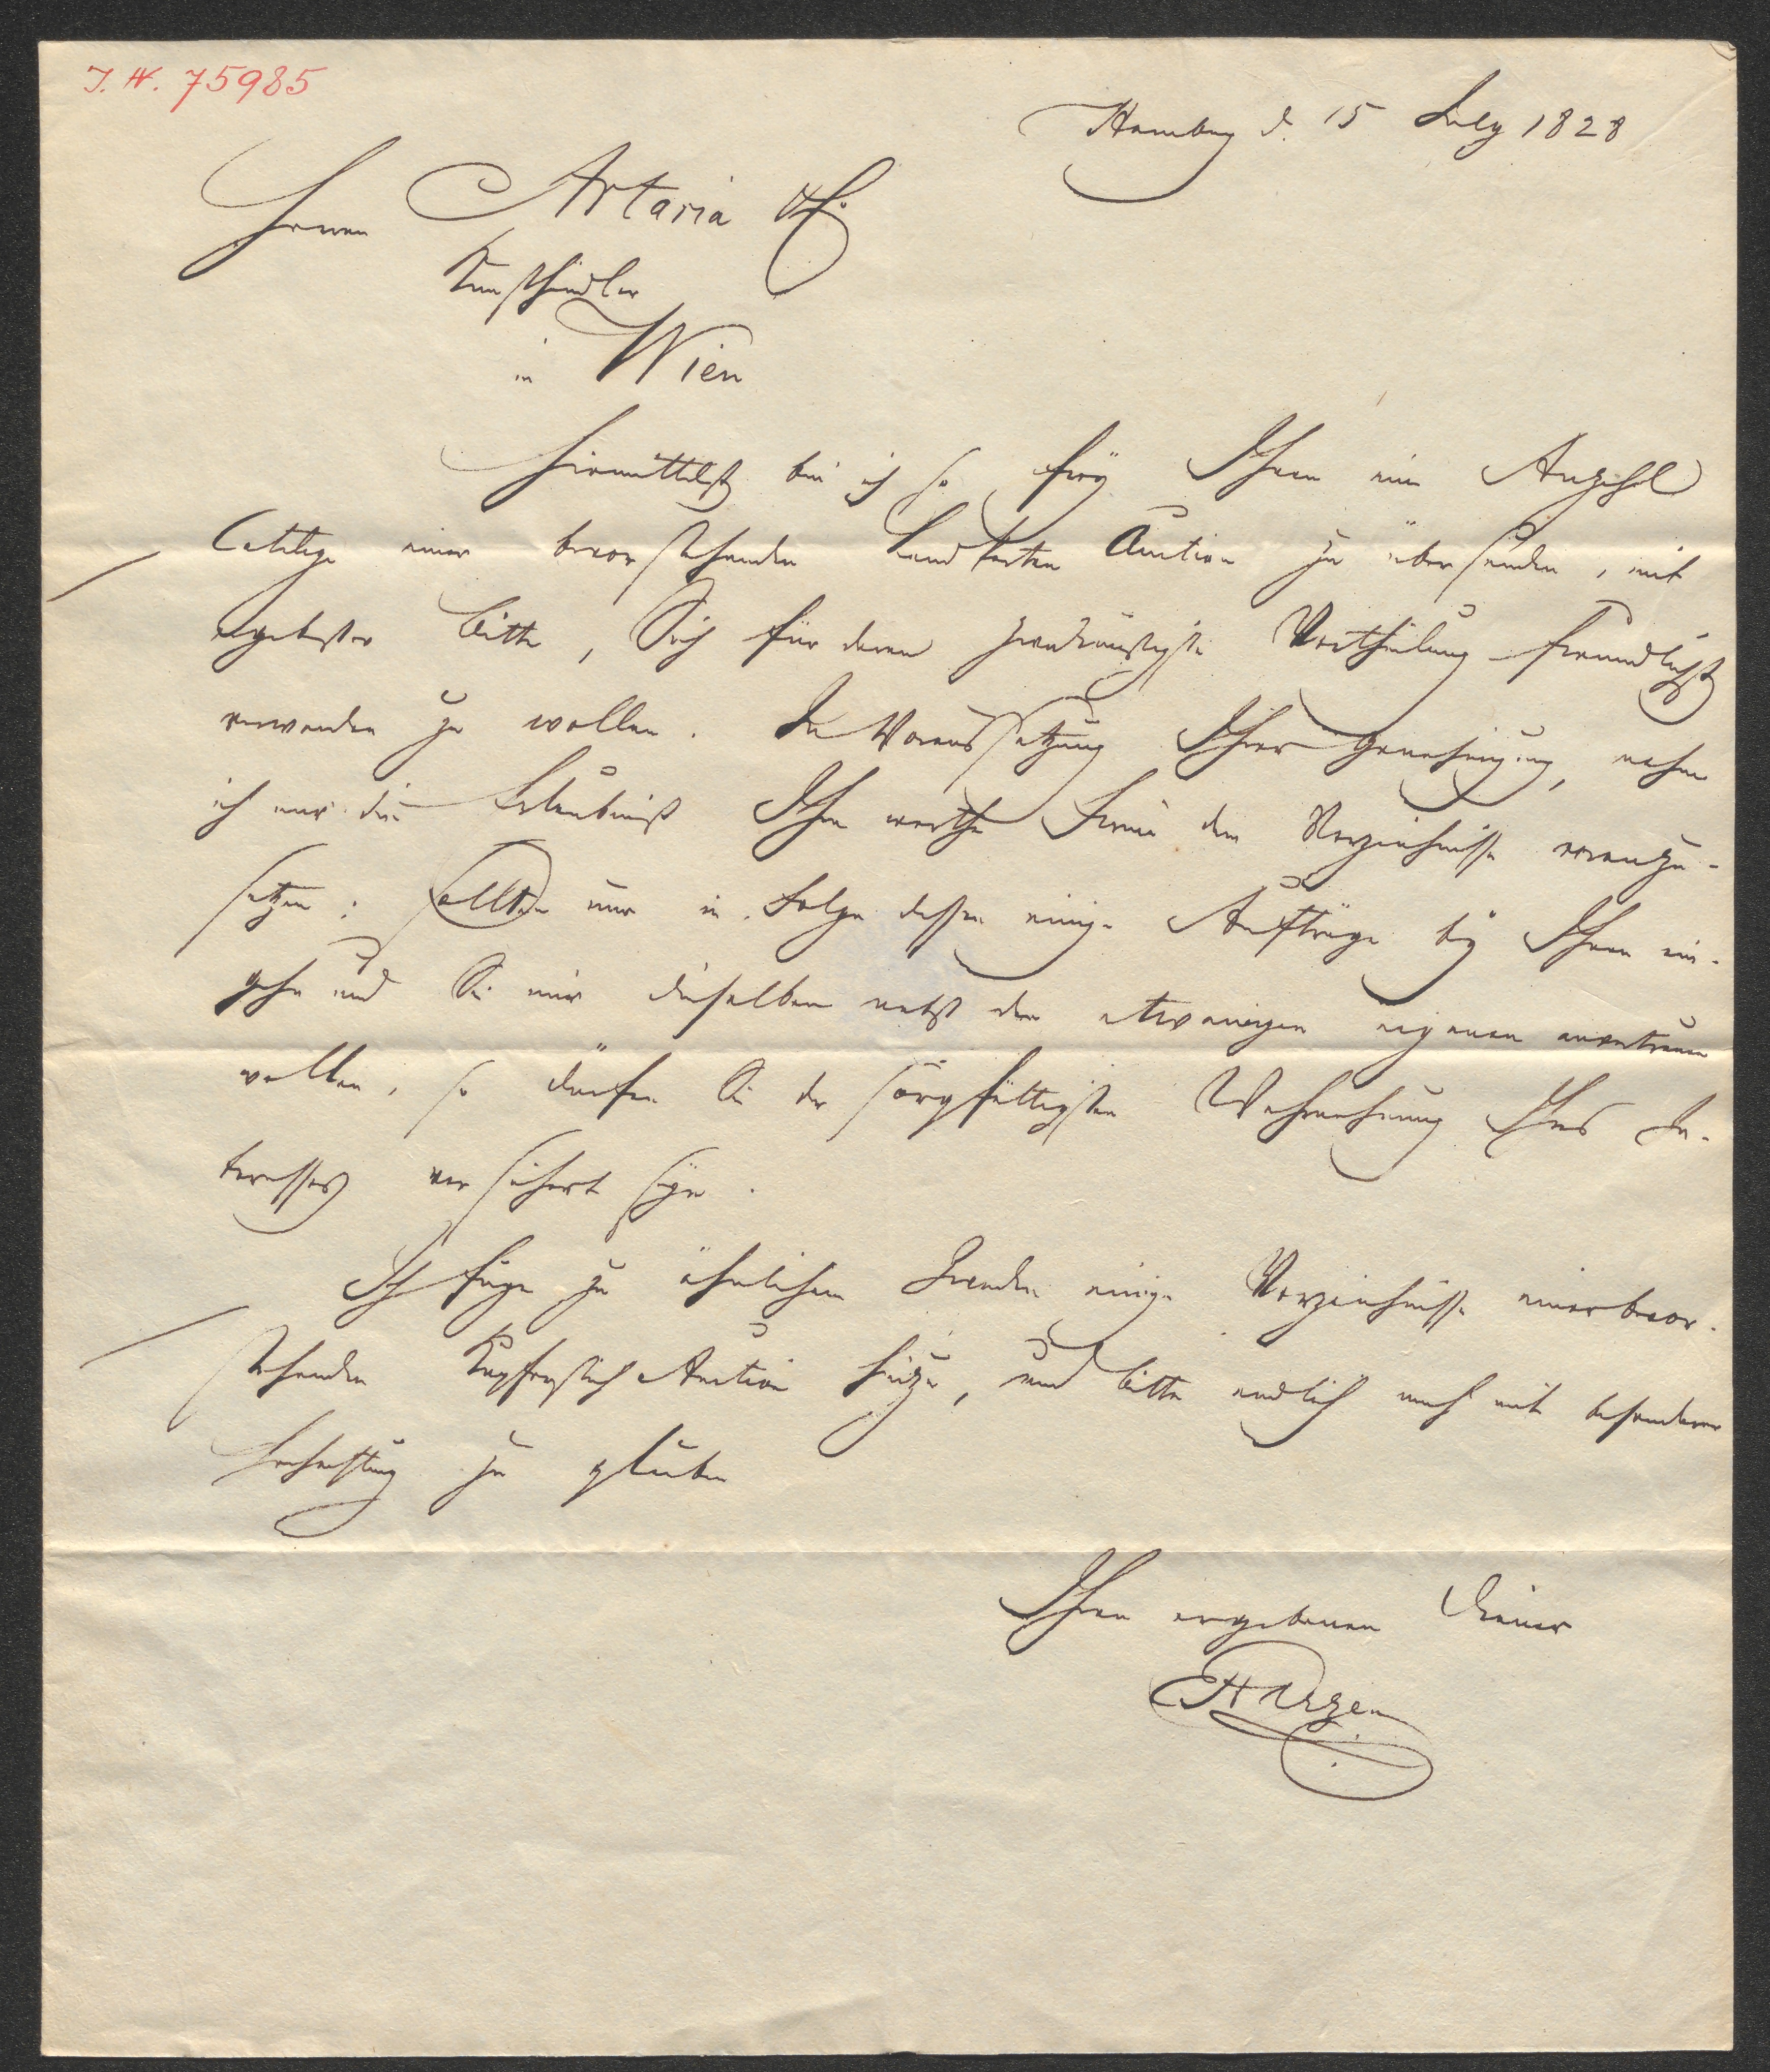 J. N. 75985
Hamburg d. 15 July 1828
Herren Artaria & C.
Kunsthändler
in Wien
Hiermittelst bin ich so frey Ihnen eine Anzahl
Cataloge einer bevorstehenden Landkarten Auction zu übersenden, mit
ergebenster Bitte, Sich für deren zweckmäßigste Vertheilung freundlichst
verwenden zu wollen. In Voraussetzung Ihrer Genehmigung, nahm
ich mir die Erlaubniß Ihre werthe Firma dem Verzeichnisse voranzu-
setzen; sollten nun in Folge dessen einige Aufträge bey Ihnen ein-
gehn und Sie mir dieselben nebst den etwanigen eigenen anvertrauen
wollen, so dürfen Sie der sorgfältigsten Wahrnehmung Ihres In-
teresses versichert seyn.
Ich füge zu ähnlichem Zwecke einige Verzeichnisse einer bevor-
stehenden Kupferstich Auction hinzu, und bitte endlich mich mit besonderer
Hochachtung zu glauben
Ihren ergebenen Diener
E Harzen